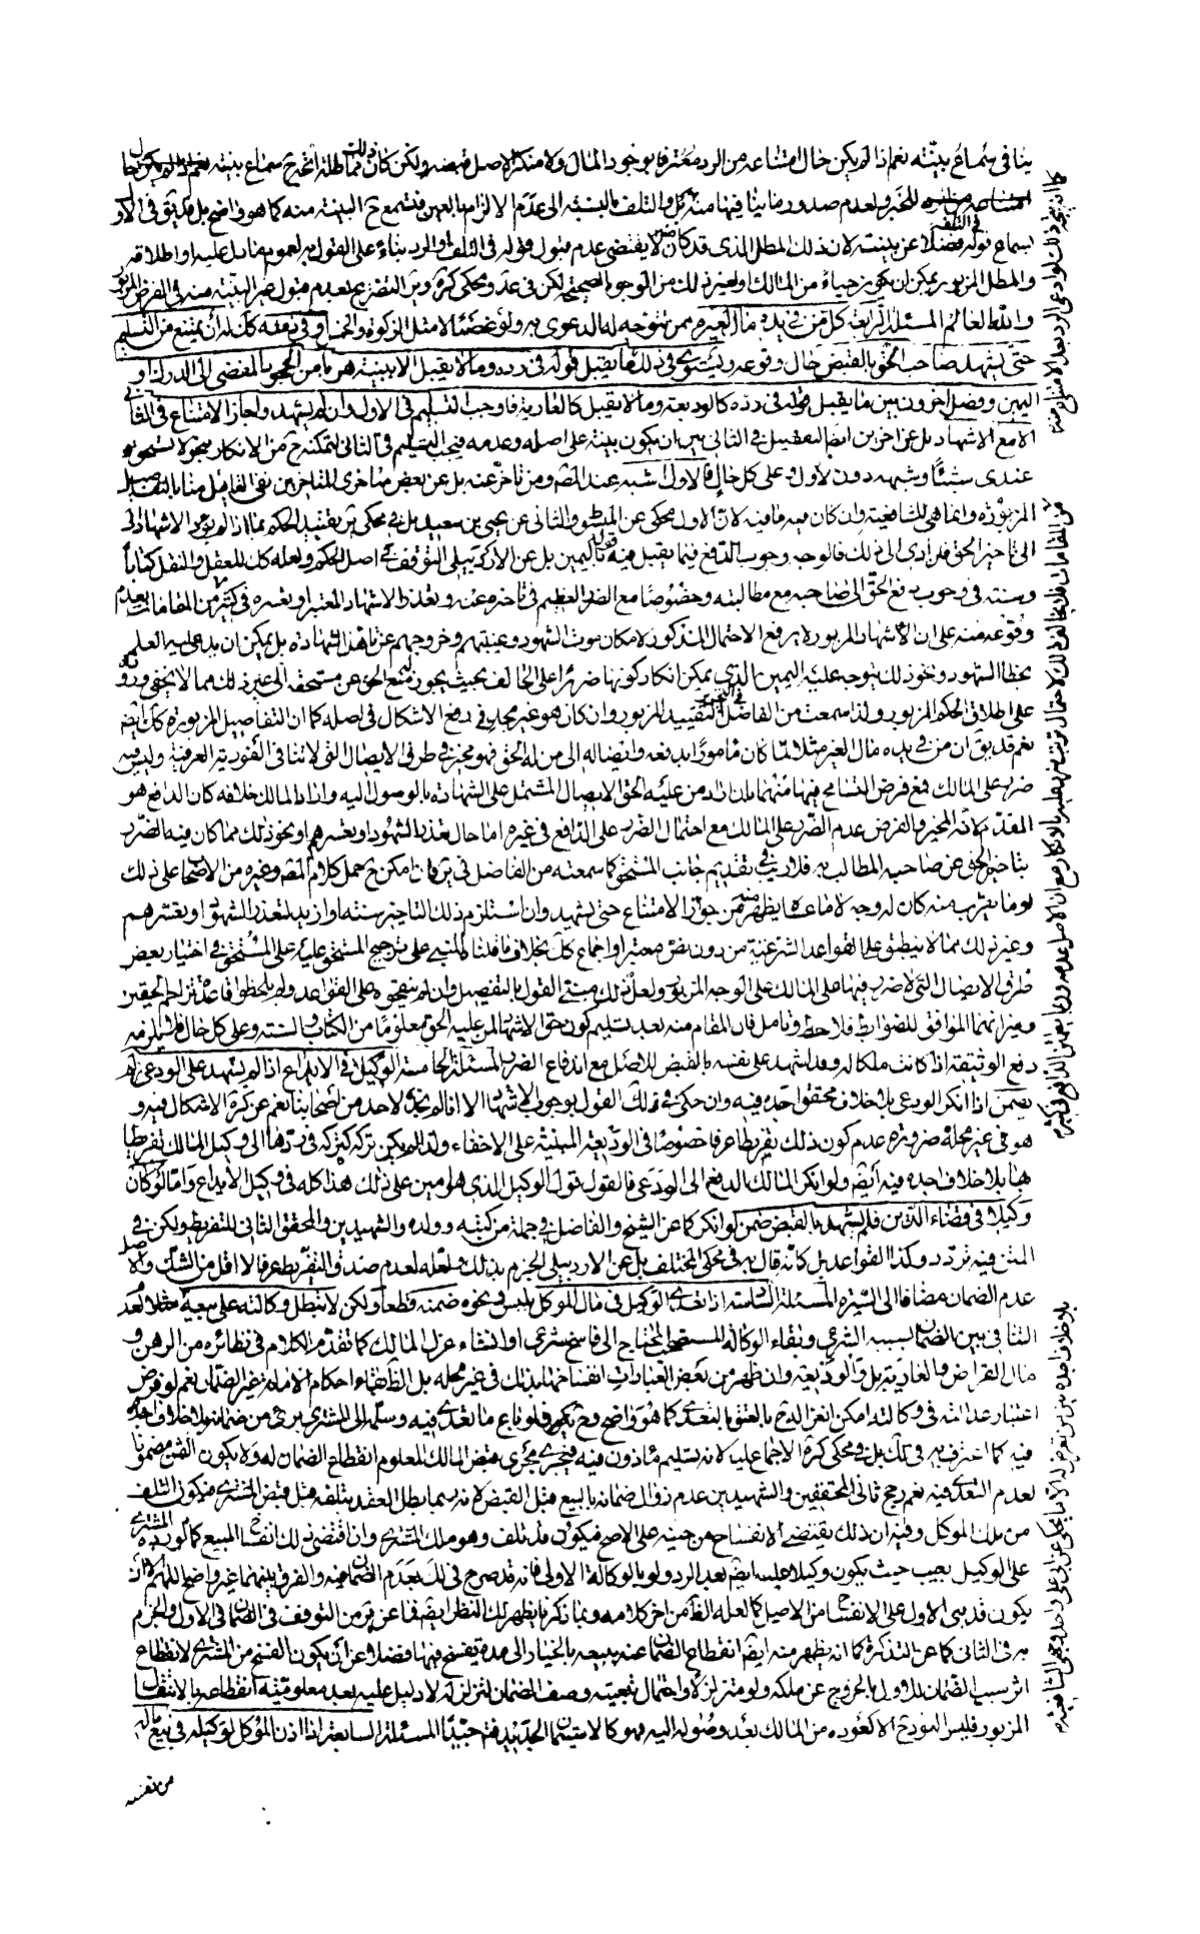 ينافي سماع بينته نعم إذا لم يكن حال امتناعه من الرد معترفا بوجود المال ولا منكرا لاصل قبضه ولكن كان ذلك مماطلة اتجه ح سماع بينته
لعدم صدور ما ينافيها منه بل والتلف بالنسبة الى عدم الالزام بالعين فتسمع ح البينة منه كما هو واضح بل قد يق في الاول
بسماع قوله في التلف فضلا عن بينته لان ذلك المطل الذي قد كان منه لا يقتضي عدم قبول قوله في التلف او الرد بناء على القول به لعموم ما دل عليه او اطلاقه
والمطل المزبور يمكن ان يكون رجاء من المالك او لغير ذلك من الوجوه الصحيحة لكن في عد ومحكي كرة وير التصريح بعدم قبول غير البينة منه في الفرض المزبور
والله العالم المسئلة الرابعة كل من في يده مال لغيره ممن تتوجه له الدعوى به ولو غصبا لا مثل الزكوة والخمس او في ذمته كك له ان يمتنع من التسليم
حتى يشهد صاحب الحق بالقبض حال وقوعه ويستوي في ذلك ما يقبل قوله في رده وما لا يقبل الا ببينة هربا من الجحود المفضي الى الدرك او
اليمين وفصل اخرون بين ما يقبل قوله في رده كالوديعة وما لا يقبل كالعارية فاوجب التسليم في الاول وان لم يشهد واجاز الامتناع في الثاني
الا مع الاشهاد بل عن اخرين ايضا التفصيل في الثاني بين ان يكون بينة على اصله وعدمه فيجب التسليم في الثاني لتمكنه ح من الانكار بنحو لا تستحق
عندي شيئا وشبهه دون الاول وعلى كل حال فالاول اشبه عند المصنف ومن تاخر عنه بل عن بعض متاخري المتاخرين نفي القائل منا بالتفصيل
المزبور وانما هي للشافعية وان كان فيه ما فيه لان الاول محكي عن المبسوط والثاني عن يحيى بن سعيد بل في محكي ير تقييد الحكم بما اذا لم يؤد الاشهاد
الى تاخير الحق فان ادى الى ذلك فالوجه وجوب الدفع فيما يقبل فيه قوله باليمين بل عن الاردبيلي التوقف في اصل الحكم ولعله كك للعقل والنقل كتابا
وسنة في وجوب دفع الحق الى صاحبه مع مطالبته وخصوصا مع الضرر العظيم في تاخره عنه وتعذر الاشهاد المعتبر او تعسره في كثير من المقامات بعدم
وقوعه منه على ان الاشهاد المزبور لا يرفع الاحتمال المذكور لامكان موت الشهود وغيبتهم وخروجهم عن اهلية الشهادة بل يمكن ان يدعى عليه العلم
بخطا الشهود ونحو ذلك فيتوجه عليه اليمين بالذي يمكن انكار كونها ضررا على الحالف بحيث يجوز له منع الحق عن مستحقه الى غير ذلك مما لا يخفى وروده
على اطلاق الحكم المزبور ولذا سمعت من الفاضل في التحرير التقييد المزبور وان كان هو غير مجد في رفع الاشكال في اصله كما ان التفاصيل المزبورة كك ايضا
نعم قد يق ان من في يده مال الغير مثلا لما كان مأمورا بدفعه وايصاله الى من له الحق فهو مخير في طرق الايصال التي لا تنافي الفورية العرفية وليس فيه
ضرر على المالك فمع فرض التسامح فيها منهما بان اراد من عليه الحق الايصال المشتمل على الشهادة بالوصول اليه واراد المالك خلافه كان الدافع هو
المقدم لانه المخير والفرض عدم الضرر على المالك مع احتمال الضرر على الدافع في غيره اما حال تعذر الشهود او تعسرهم او نحو ذلك مما كان فيه الضرر
بتاخير الحق عن صاحبه المطالب به فلا ريب في تقديم جانب المستحق كما سمعته من الفاضل في ير فان امكن ح حمل كلام المصنف وغيره من الاصحاب على ذلك
او ما يقرب منه كان له وجه لا ما عساه يظهر منهم من جواز الامتناع حتى يشهد وان استلزم ذلك التاخير سنة او ازيد لتعذر الشهود او تعسرهم
وغير ذلك مما لا ينطبق على القواعد الشرعية من دون نص معتبر او اجماع كك بخلاف ما قلناه المبني على ترجيح المستحق عليه على المستحق في اختيار بعض
طرق الايصال التي لا ضرر فيها على المالك على الوجه المزبور ولعل ذلك مبنى القول بالتفصيل وان لم ينقحوه على القواعد ولم يلحظوا قاعدة تزاحم الحقين
وميزانهما الموافق للضوابط فلاحظ وتامل فان المقام منه بعد تسليم كون حق الاشهاد لمن عليه الحق معلوما من الكتاب والسنة وعلى كل حال فلا يلزمه
دفع الوثيقة اذا كانت ملكا له وقد اشهد على نفسه بالقبض للاصل مع اندفاع الضرر المسئلة الخامسة الوكيل في الايداع اذا لم يشهد على الودعي لم
يضمن اذا انكر الودعي بلا خلاف محقق اجده فيه وان حكي في ذلك القول بوجوب الاشهاد الا انا لم نجده لاحد من اصحابنا نعم عن كرة الاشكال فيه و
هو في غير محله ضرورة عدم كون ذلك تفريطا عرفا خصوصا في الوديعة المبنية على الاخفاء ولذا لم يكن تركه كتركه في ردها الى وكيل المالك تفريطا
هنا بلا خلاف اجده فيه ايضا ولو انكر المالك الدفع الى الودعي فالقول قول الوكيل الذي هو امين على ذلك هذا كله في وكيل الايداع واما لو كان
وكيلا في قضاء الدين فلم يشهد بالقبض ضمن لو انكر كما عن الشيخ والفاضل في جملة من كتبه وولده والشهيدين والمحقق الثاني للتفريط ولكن في
المتن فيه تردد وكذا القواعد بل كانه قال به في محكي المختلف بل عن الاردبيلي الجزم بذلك ولعله لعدم صدق التفريط عرفا لا اقل من الشك والاصل
عدم الضمان مضافا الى السيرة المسئلة السادسة اذا تعدى الوكيل في مال الموكل بلبس ونحوه ضمنه قطعا ولكن لا تبطل وكالته على بيعه مثلا لعدم
التنافي بين الضمان لسببه الشرعي وبقاء الوكالة المستصحب المحتاج الى فاسخ شرعي او انشاء عزل المالك كما تقدم الكلام في نظائره من الرهن و
مال القراض والعارية بل والوديعة وان ظهر من بعض العبارات انفساخها بذلك في غير محله بل الظ بقاء احكام الامانة غير الضمان نعم لو فرض
اعتبار عدالته في وكالته امكن انعزاله ح بالفسق بالتعدي كما هو واضح وح فلو باع ما تعدى فيه وسلمه الى المشتري برئ من ضمانه بلا خلاف اجده
فيه كما اعترف به في لك بل في محكي كرة الاجماع عليه لانه تسليم مأذون فيه فيجري مجرى قبض المالك المعلوم انقطاع الضمان له ولا يكون الثمن مضمونا
لعدم التعدي فيه نعم رجح ثاني المحققين والشهيدين عدم زوال ضمانه بالبيع قبل القبض لانه ربما بطل العقد بتلفه قبل قبض المشتري فيكون التلف
من ملك الموكل وفيه ان ذلك يقتضي الانفساخ من حينه على الاصح فيكون قد تلف وهو ملك المشتري وان اقتضى ذلك انفساخ المبيع كما لو رده المشتري
على الوكيل بعيب حيث يكون وكيلا عليه ايضا بعد الرد ولو بالوكالة الاولى فانه قد صرح في لك بعدم الضمان فيه والفرق بينهما غير واضح اللهم الا ان
يكون قد بنى الاول على الانفساخ ح من الاصل كما لعله الظ من اخر كلامه وبما ذكرنا يظهر لك النظر ايضا فيما عن ير من التوقف في الضمان في الاول والجزم
به في الثاني كما عن التذكرة كما انه يظهر منه ايضا انقطاع الضمان عنه ببيعه بالخيار الى مدة يفسخ فيها فضلا عن ان يكون الفسخ من المشتري لانقطاع
اثر سبب الضمان للاول بالخروج عن ملكه ولو متزلزلا واحتمال تبعية وصف الضمان لتزلزله لا دليل عليه بعد معلومية انقطاعه بالانتقال
المزبور فليس العود ح الا كعوده من المالك بعد وصوله اليه فهو كالاستيمان الجديد فتدبر جيدا المسئلة السابعة اذا اذن الموكل لوكيله في بيع ماله
من نفسه